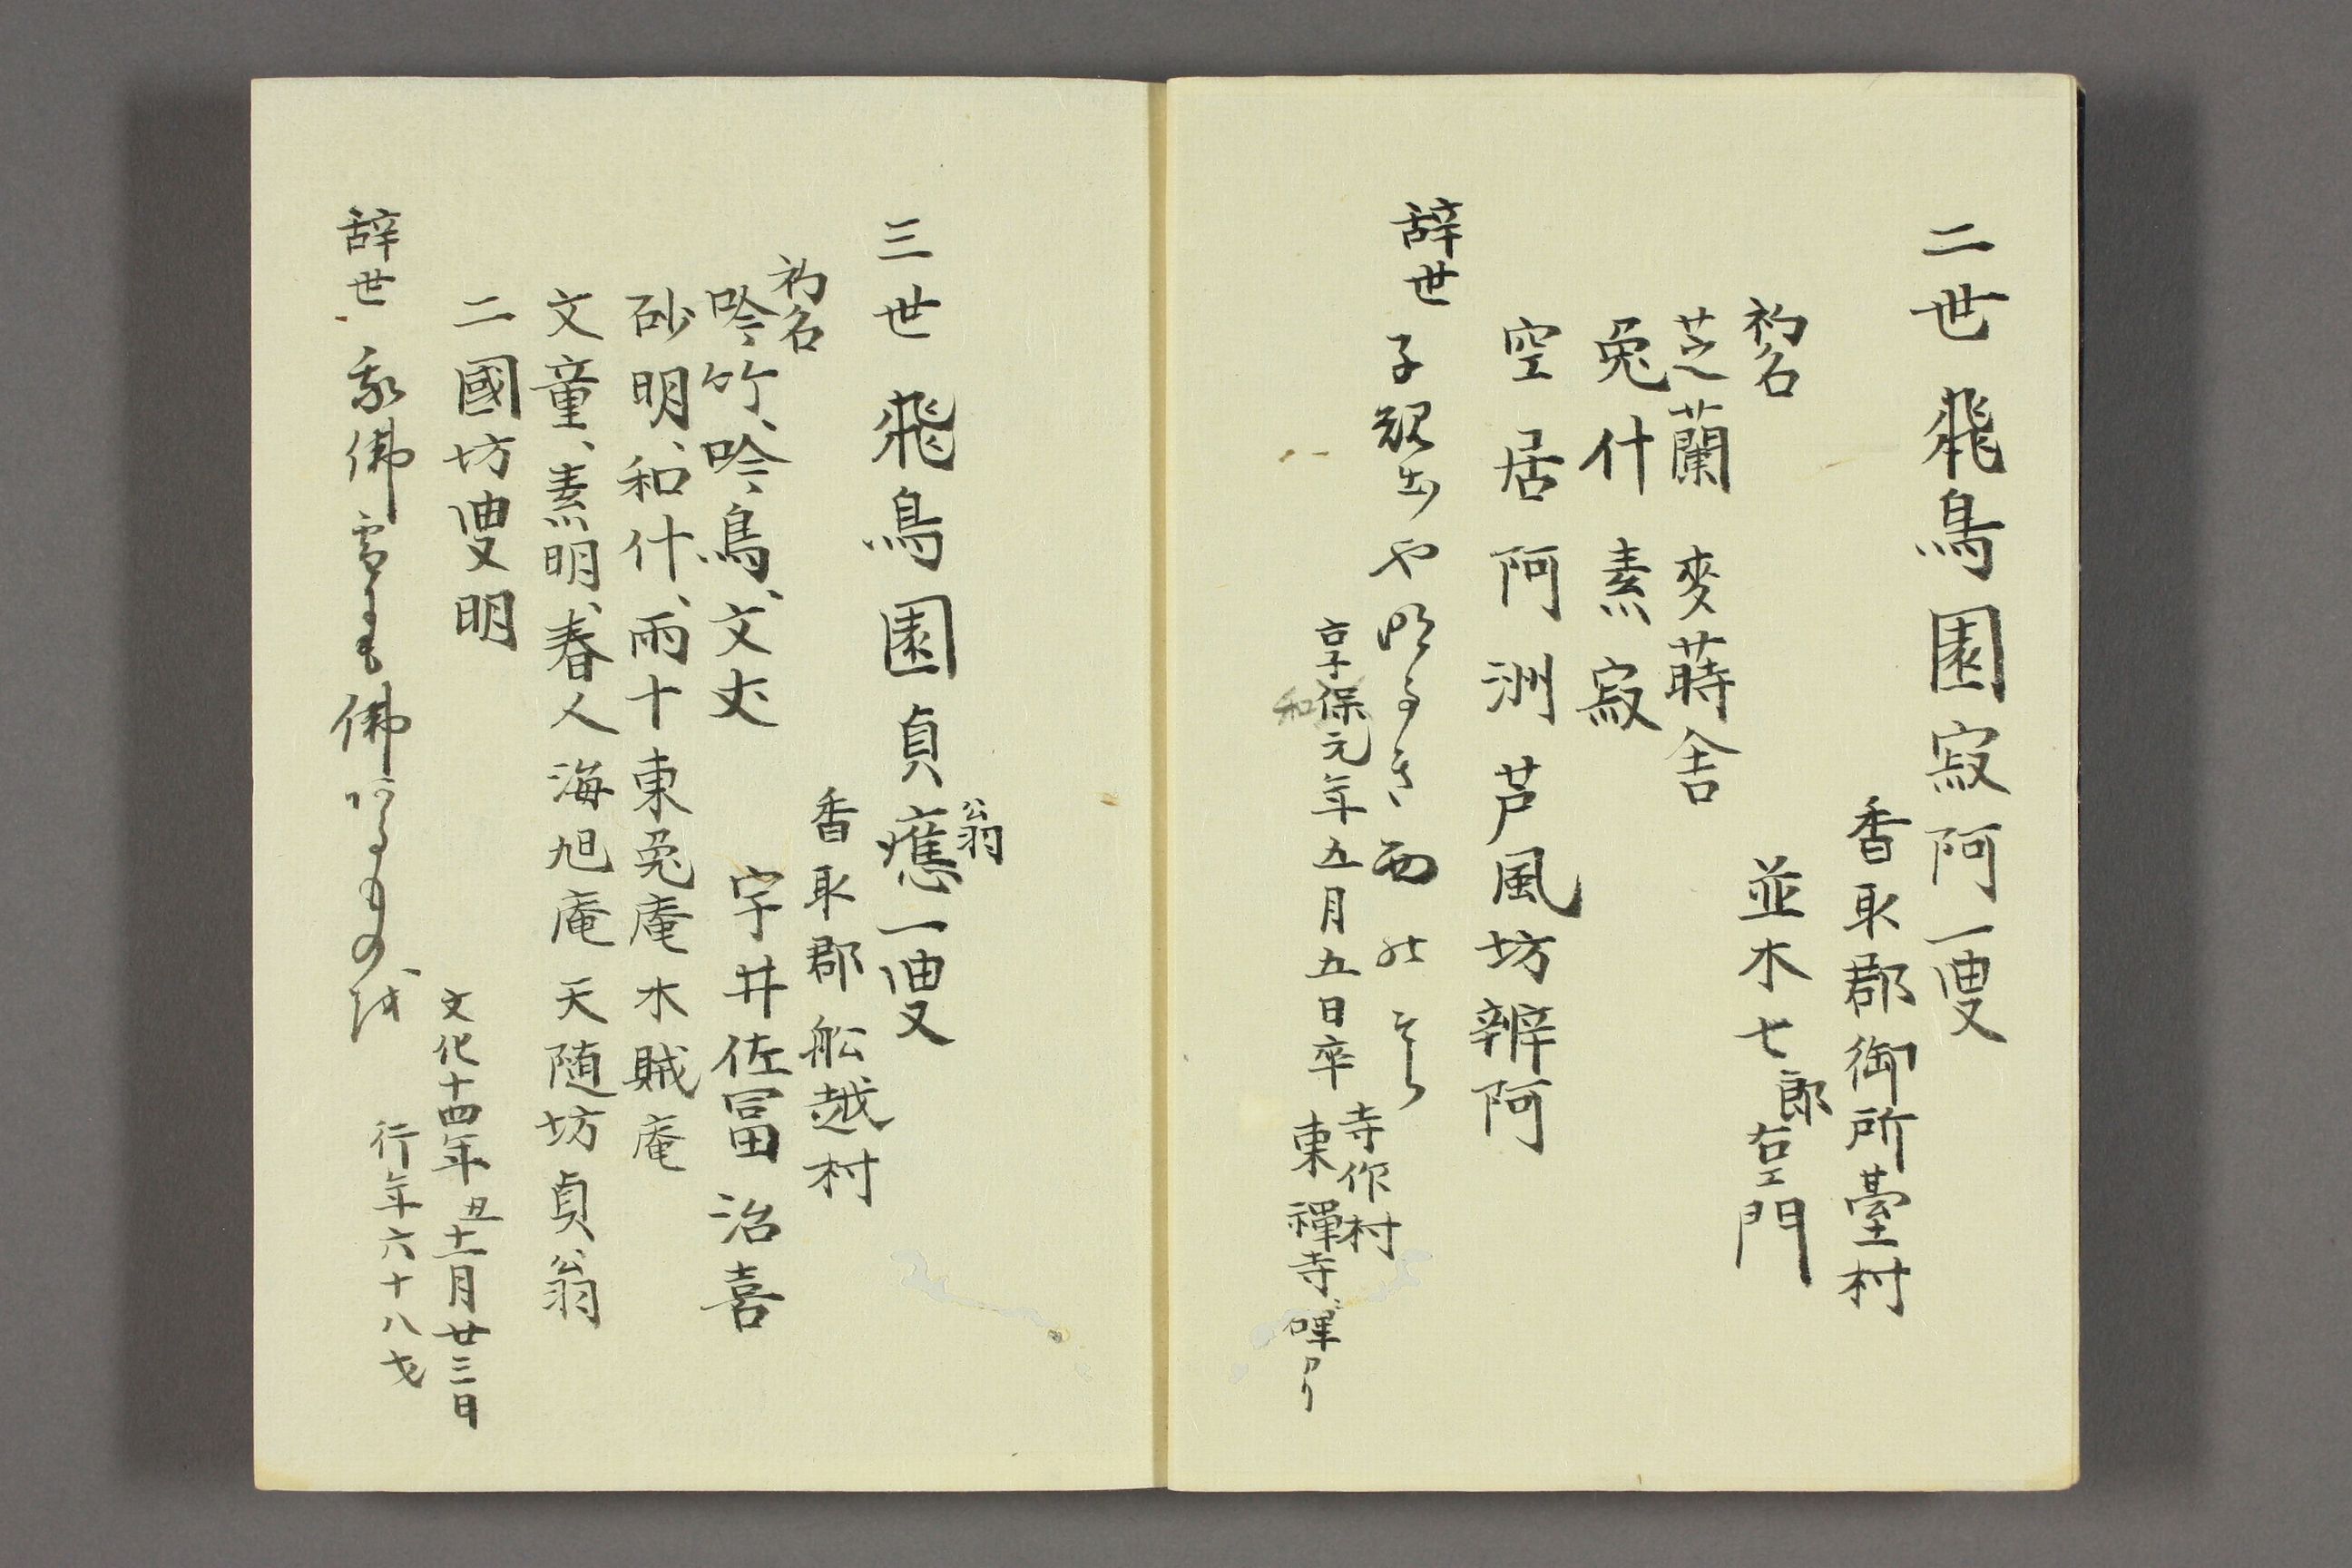 二世飛鳥園寂阿一叟
香取郡御所臺村
並木七郎右エ門
初名
芝蘭 麥蒔舎
兎什 素寂
空居 阿洲 芦風坊 辨阿
辞世 子規出や明るき西の そら
享保元年五月五日卒
和
寺作村
東禪寺ニ碑アリ
三世飛鳥園貞應一叟
翁
香取郡舩越村
宇井佐冨治喜
初名
吟竹、吟鳥、文丈
砂明、和什、雨十 東兎庵 木賊庵
文童、素明、春人 海旭庵 天随坊 貞翁
二國坊叟明
文化十四年丑十二月廿三日
行年六十八才
辞世
佛
佛